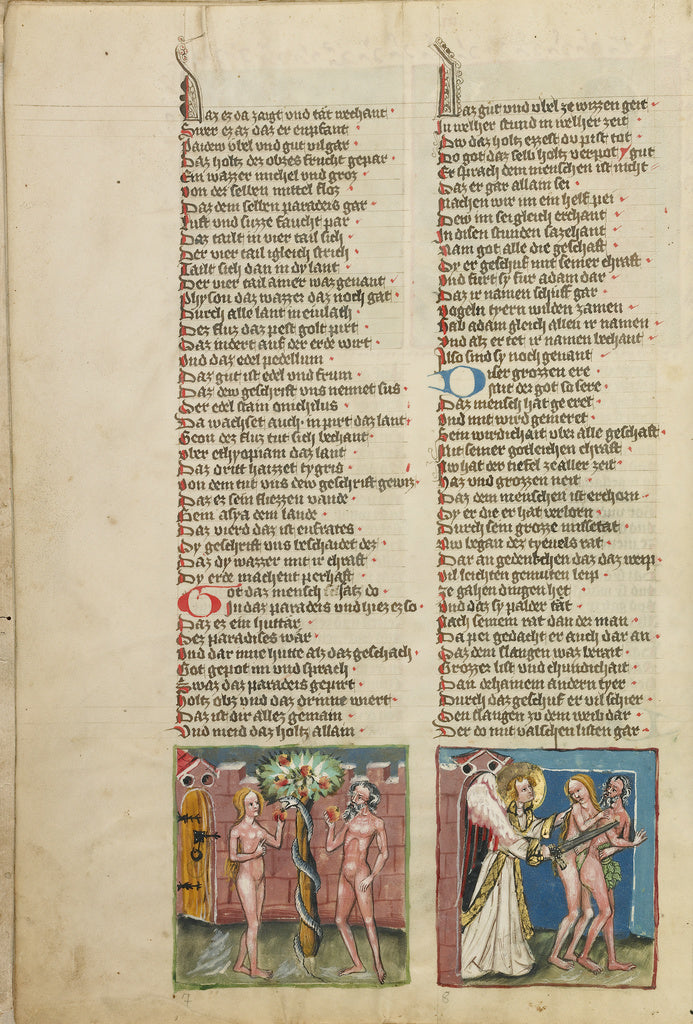 Daz ez da zaigt vnd tät bechant
Swer ez az daz er enpfant
Paidew vbel vnd gut vil gar
Daz holtz dez obzes frucht gepar
Ein wazzer michel vnd groz
Von der selben mittel floz
Daz dem selben paradeis gar
Lust vnd suzze faucht par
Daz tailt in vier tail sich
Der vier tail igleich strich
Tailt sich dan in dy lant
Der vier tail ainer waz genant
Physon daz wazzer daz noch gat
Durch alle lant in eiulath
Dez fluz daz pest golt pirt
Daz indert auf der erde wirt
Vnd daz edel pedellium
Daz gut ist edel vnd frum
Daz dew geschrift vns nennet sus
Der edel stain onichilus
Da wachset auch in purt daz lant
Geon der fluz tut sich bechant
Vber ethyopiam daz lant
Daz dritt haizzet tygris
Von dem tut vns dew geschrift gewis
Daz ez sein fliezzen vande
Gem asya dem lande
Daz vierd daz ist eufrates
Dy geschrift vns beschaidet dez
Daz dy wazzer mit ir chraft
Dy erde machent perhaft
Got daz mensch satz do
In daz paradeis vnd hiez ez so
Daz ez ein huttär
Dez paradises wär
Vnd dar inne hutte alz daz geschach
Got gepot im vnd sprach
Swaz daz paradeis gepirt
Holtz obz vnd daz drinne wiert
Daz ist dir allez gemain
Vnd meid daz holtz allain
Daz gut vnd vbel ze wizzen geit
In welher stund in welher zeit
Dw daz holtz ezzest du pist tot
Do got daz selb holtz verpot
Er sprach dem menschen ist nicht gut
Daz er gar allain sei
Machen wir im ein helf pei
Dew im sei gleich erchant
In disen stunden sazehant
Nam got alle die geschaft
Dy er geschuf mit seiner chraft
Vnd furt sy fur adam dar
Daz ir namen schuff gar
Vogeln tyern wilden zamen
Gab adam gleich allen ir namen
Vnd alz er tet ir namen bechant
Also sind sy noch genant
Diser grozzen ere
Mit der got so sere
Daz mensch hat geeret
Vnd mit wird gemeret
Sein wirdichait vber alle geschaft
Mit seiner gotleichen chraft
Nw hat der tiefel ze aller zeit
Haz vnd grozzen neit
Daz dem menschen ist erchorn
Dy er die er hat verlorn
Durch sein grozze missetat
Nw began dez tyeuels rat
Dar an gedenchen daz daz weip
Vil leichten gemuten leip
Ze gahen dingen het
Vnd daz sy palder tät
Nach seinem rat dan der man
Da pei gedacht er auch dar an
Daz dem slangen waz bereit
Grozzer list vnd chundichait
Dan dehainem andern tyer
Durch daz geschuf er vil schier
Den slangen zu dem weib dar
Der do mit valschen listen gar
7
8